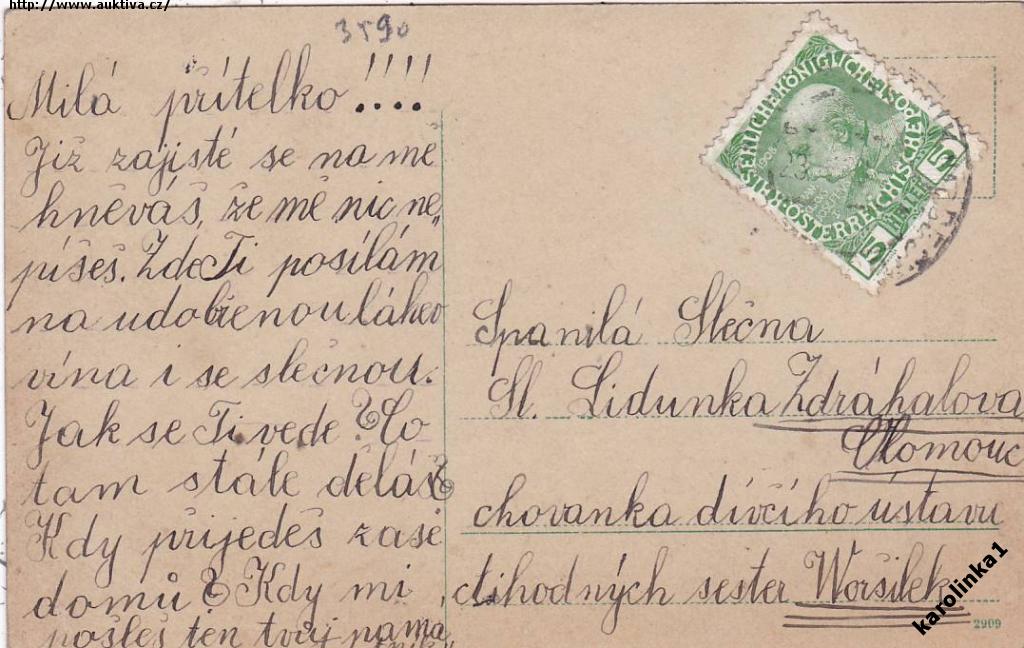 http://www.auktiva.cz/
3590
Milá přítelko!!!!
Již zajisté se na mě
hněváš, že mě nic ne„
píšeš. Zde Ti posílám
na udobřenou láhev
vína i se slečnou.
Jak se Ti vede? Co
tam stále děláš?
Kdy přijedeš zase
domů? Kdy mi
pošleš ten tvůj pama„
Spanilá Slečna
Sl. Lidunka Zdráhalova
Olomouc
chovanka dívčího ústavu
ctihodných sester Woršilek
KAISERLICHE KÖNIGLICHE
ÖSTERREICHISCHE POST
5 HELLER 5
2909
karolinka1